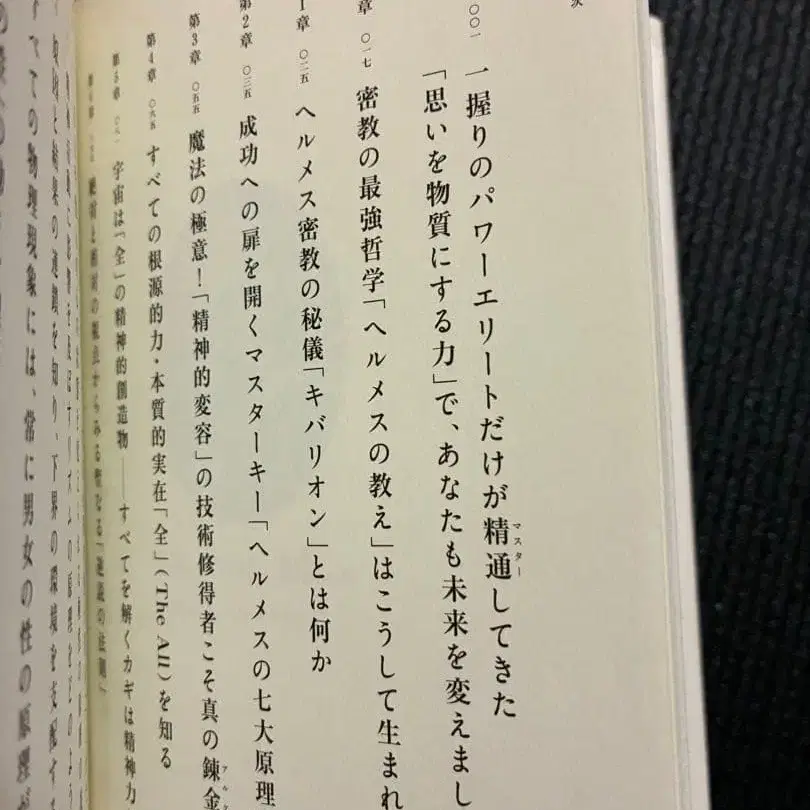 次
〇〇一 一握りのパワーエリートだけが精通してきた
マスター
「思いを物質にする力」で、あなたも未来を変えまし
章 〇一七 密教の最強哲学「ヘルメスの教え」はこうして生まれ
1章 〇二五 ヘルメス密教の秘儀「キバリオン」とは何か
第2章 〇三五 成功への扉を開くマスターキー「ヘルメスの七大原理
第3章 〇五五 魔法の極意!「精神的変容」の技術修得者こそ真の錬金
アルケ
第4章 〇六五 すべての根源的力・本質的実在「全」(The All)を知る
第5章 宇宙は「全」の精神的創造物——すべてを解くカギは精神力
絶対と相対の観点からみる聖なる「逆説の法則」
と結果の連鎖を知り、下界の環境を支配する
すべての物理現象には、常に男女の性の原理が